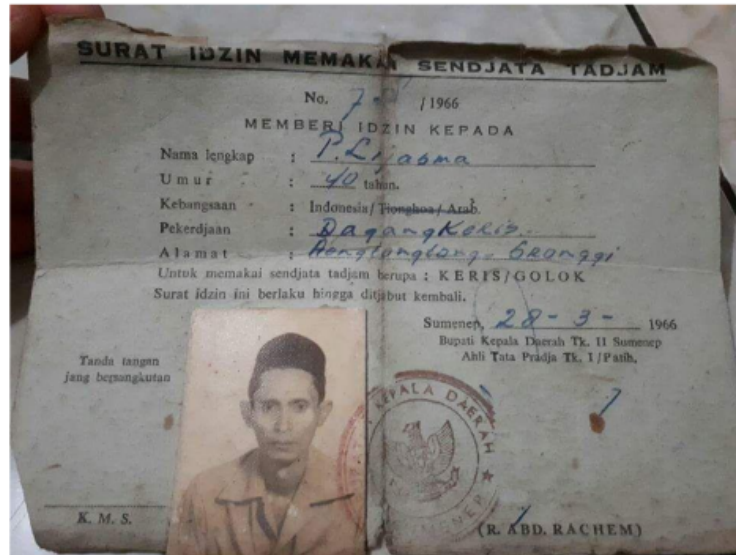 SURAT IDZIN MEMAKAI SENDJATA TADJAM
No. 7 / 1966
MEMBERI IDZIN KEPADA
Nama lengkap : P. Lijasma
Umur : 40 tahun.
Kebangsaan : Indonesia/Tionghoa/Arab.
Pekerdjaan : Dagang Keris
Alamat :
Untuk memakai sendjata tadjam berupa : KERIS/GOLOK
Surat idzin ini berlaku hingga ditjabut kembali.
Sumenep, 28-3- 1966
Bupati Kepala Daerah Tk. II Sumenep
Ahli Tata Pradja Tk. I/Patih.
Tanda tangan
jang bersangkutan
KEPALA DAERAH
SUMENEP
K. M. S.
(R. ABD. RACHEM)